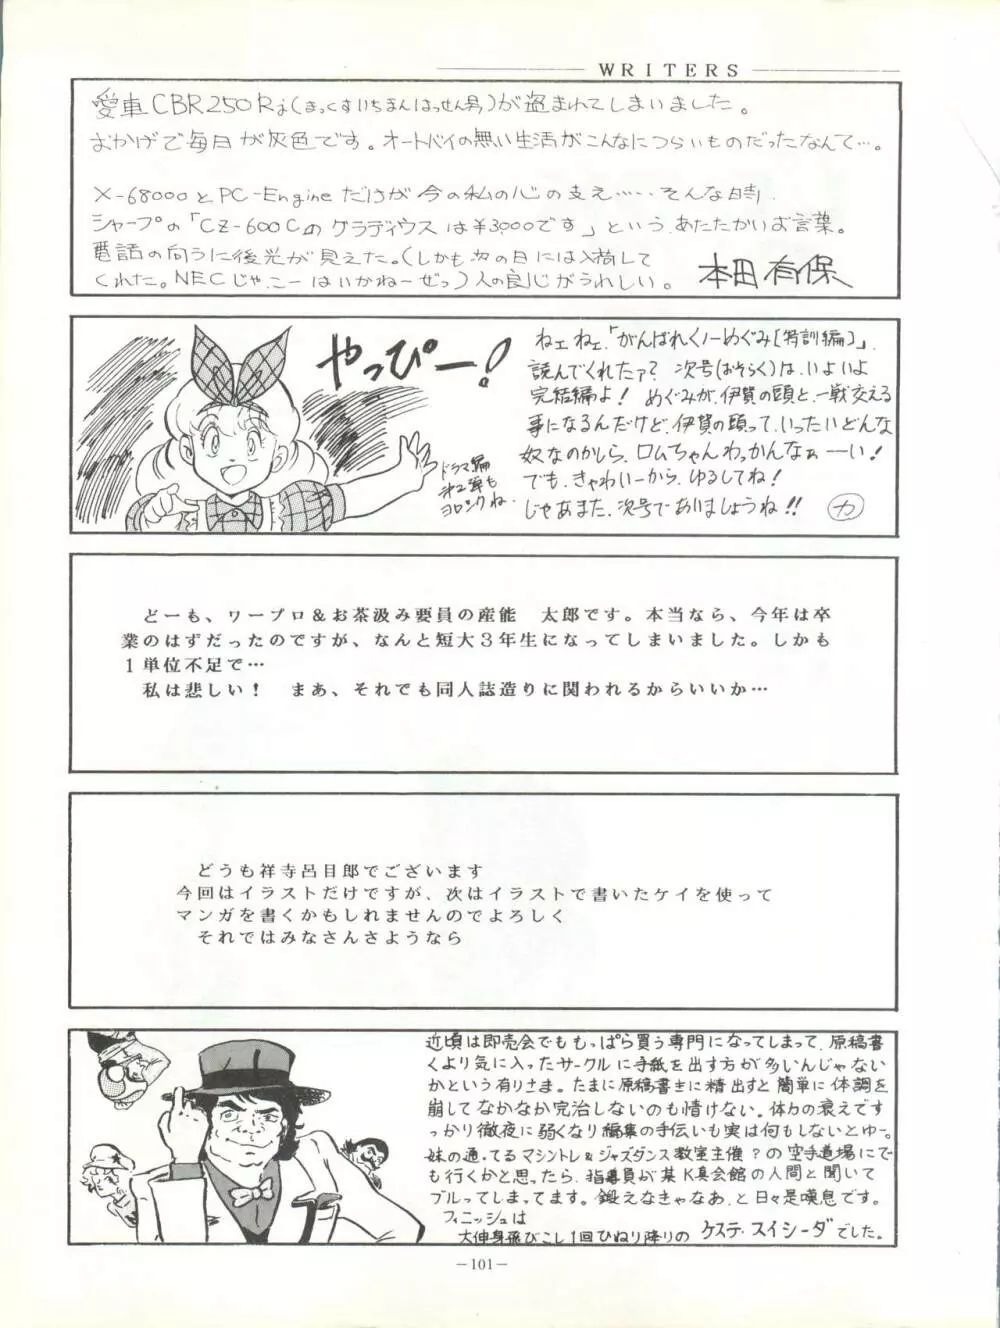 WRITERS
愛車CBR250Rj(まっくすいちまんはっせん号)が盗まれてしまいました。
おかげで毎日が灰色です。オートバイの無い生活がこんなにつらいものだったなんて…。
X-68000とPC-Engineだけが今の私の心の支え……そんな時、
シャープの「CZ-600Cのグラディウスは¥3,000です」という、あたたかいお言葉。
電話の向うに後光が見えた。(しかも次の日には入荷して
くれた。NECじゃ、こーはいかねーぜっ)人の良心がうれしい。
本田有保
やっぴー!
ドラマ編
第2弾も
ヨロシクね。
ねェねェ、「がんばれくノ一めぐみ[特訓編]」、
読んでくれたァ? 次号(おそらく)は、いよいよ
完結編よ! めぐみが、伊賀の頭と、一戦交える
事になるんだけど、伊賀の頭って、いったいどんな
奴なのかしら、ロムちゃんわっかんなぁーい!
でも、きゃわいーから、ゆるしてね!
じゃあまた、次号でありましょうね!!
カ
どーも、ワープロ&お茶汲み要員の産能 太郎です。本当なら、今年は卒
業のはずだったのですが、なんと短大3年生になってしまいました。しかも
1単位不足で…
私は悲しい! まあ、それでも同人誌造りに関われるからいいか…
どうも祥寺呂目郎でございます
今回はイラストだけですが、次はイラストで書いたケイを使って
マンガを書くかもしれませんのでよろしく
それではみなさんさようなら
近頃は即売会でももっぱら買う専門になってしまって、原稿書
くより気に入ったサークルに手紙を出す方が多いんじゃない
かという有りさま。たまに原稿書きに精出すと簡単に体調を
崩してなかなか完治しないのも情けない。体力の衰えですっ
かり徹夜に弱くなり編集の手伝いも実は何もしないとゆー。
妹の通ってるマシントレ&ジャズダンス教室主催?の空手道場にで
も行くかと思ったら、指導員が某K真会館の人間と聞いて
ブルってしまってます。鍛えなきゃなあ、と日々是嘆息です。
フィニッシュは
大伸身飛びこし1回ひねり降りの ケステ・スイシーダでした。
-101-